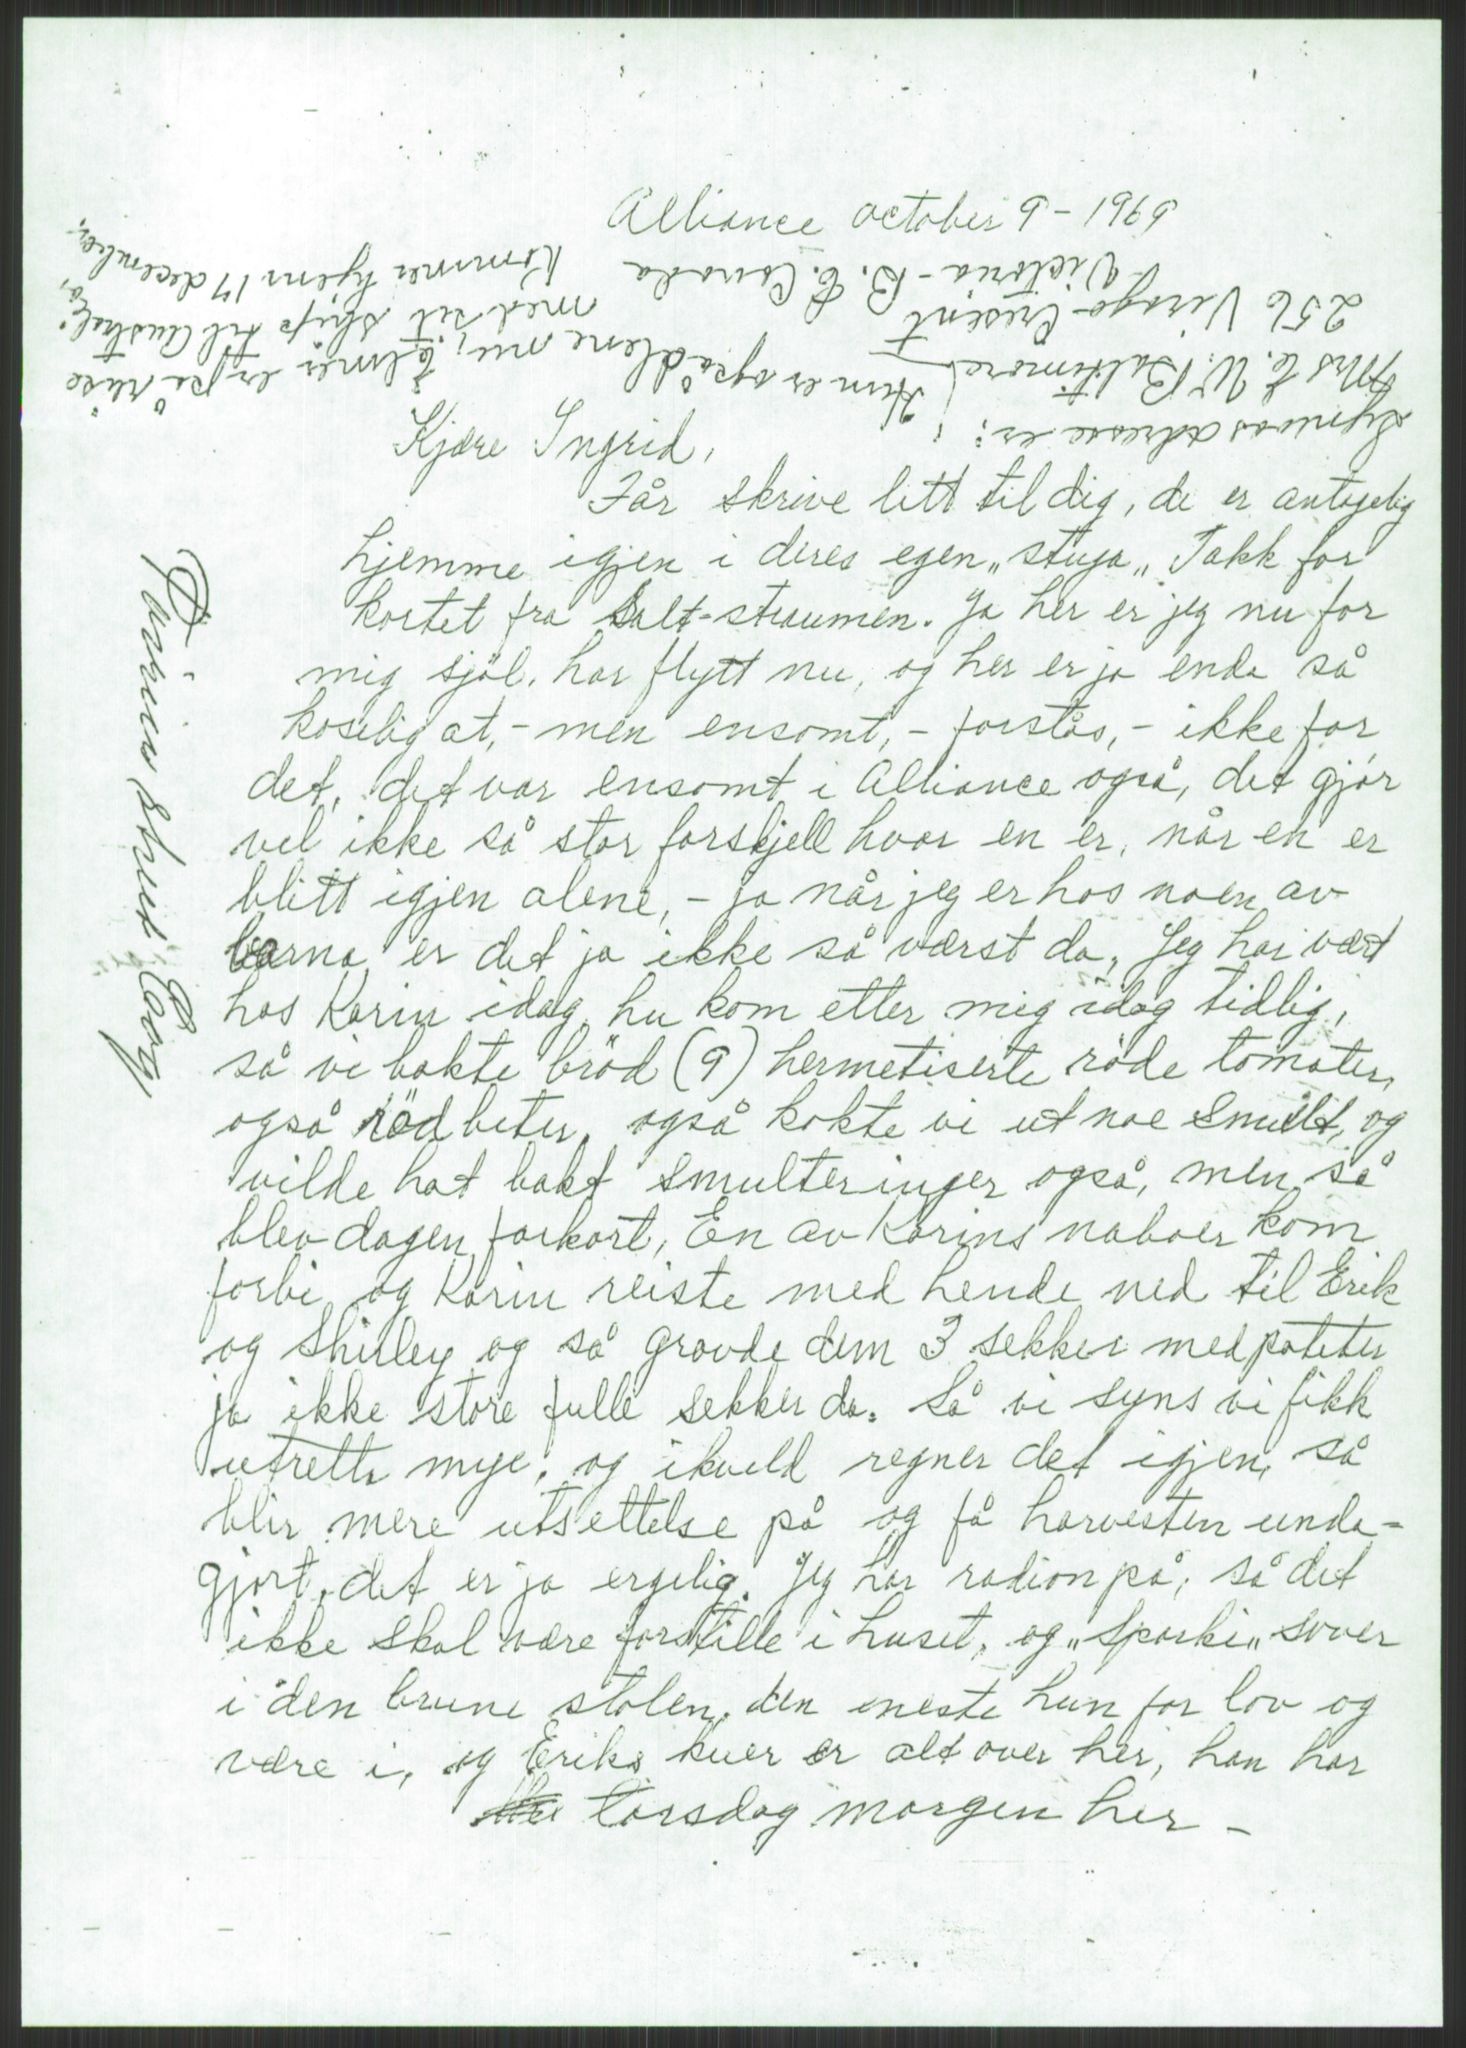 Alliance october 9 - 1969
Kjære Ingrid,
Får skrive litt til dig, de er antagelig
hjemme igjen i deres egen „stuga„ Takk for
kortet fra Salt-straumen. Ja her er jeg nu for
mig sjøl. har flytt nu, og her er ja enda så
koselig at, - men ensomt, - forstås, - ikke for
det, det var ensomt i Alliance også, det gjør
vel ikke så stor forskjell hvor en er, når en er
blitt igjen alene, - ja når jeg er hos noen av
barna er det ja ikke så værst da, Jeg har vært
hos Karin idag, hu kom etter mig idag tidlig,
så vi bakte brød (9) hermetiserte røde tomater,
også rødbeter, også kokte vi ut noe smult, og
vilde hat bakt smulteringer også, men så
blev dagen forkort, En av Karins naboer kom
forbi og Karin reiste med hende ned til Erik
og Shirley og så gravde dem 3 sekker med poteter
ja ikke store fulle sekker da. Så vi syns vi fikk
utretta mye, og ikveld regner det igjen, så
blir mere utsettelse på og få harvesten unda-
gjort, det er ja ergelig. Jeg har radion på, så det
ikke skal være forstille i huset, og „Sparki„ sover
i den brune stolen, den eneste hun far lov og
være i, og Eriks kuer er alt over her, han har
torsdag morgen her -
Signoras adresse er:
Mrs E. W. Baltimore
256 Virago Cresent
Victoria - B. C. Canada
Hun er også alene nu, Elmer er på reise
med sit skip til Australia,
Kommer hjem 17 december,